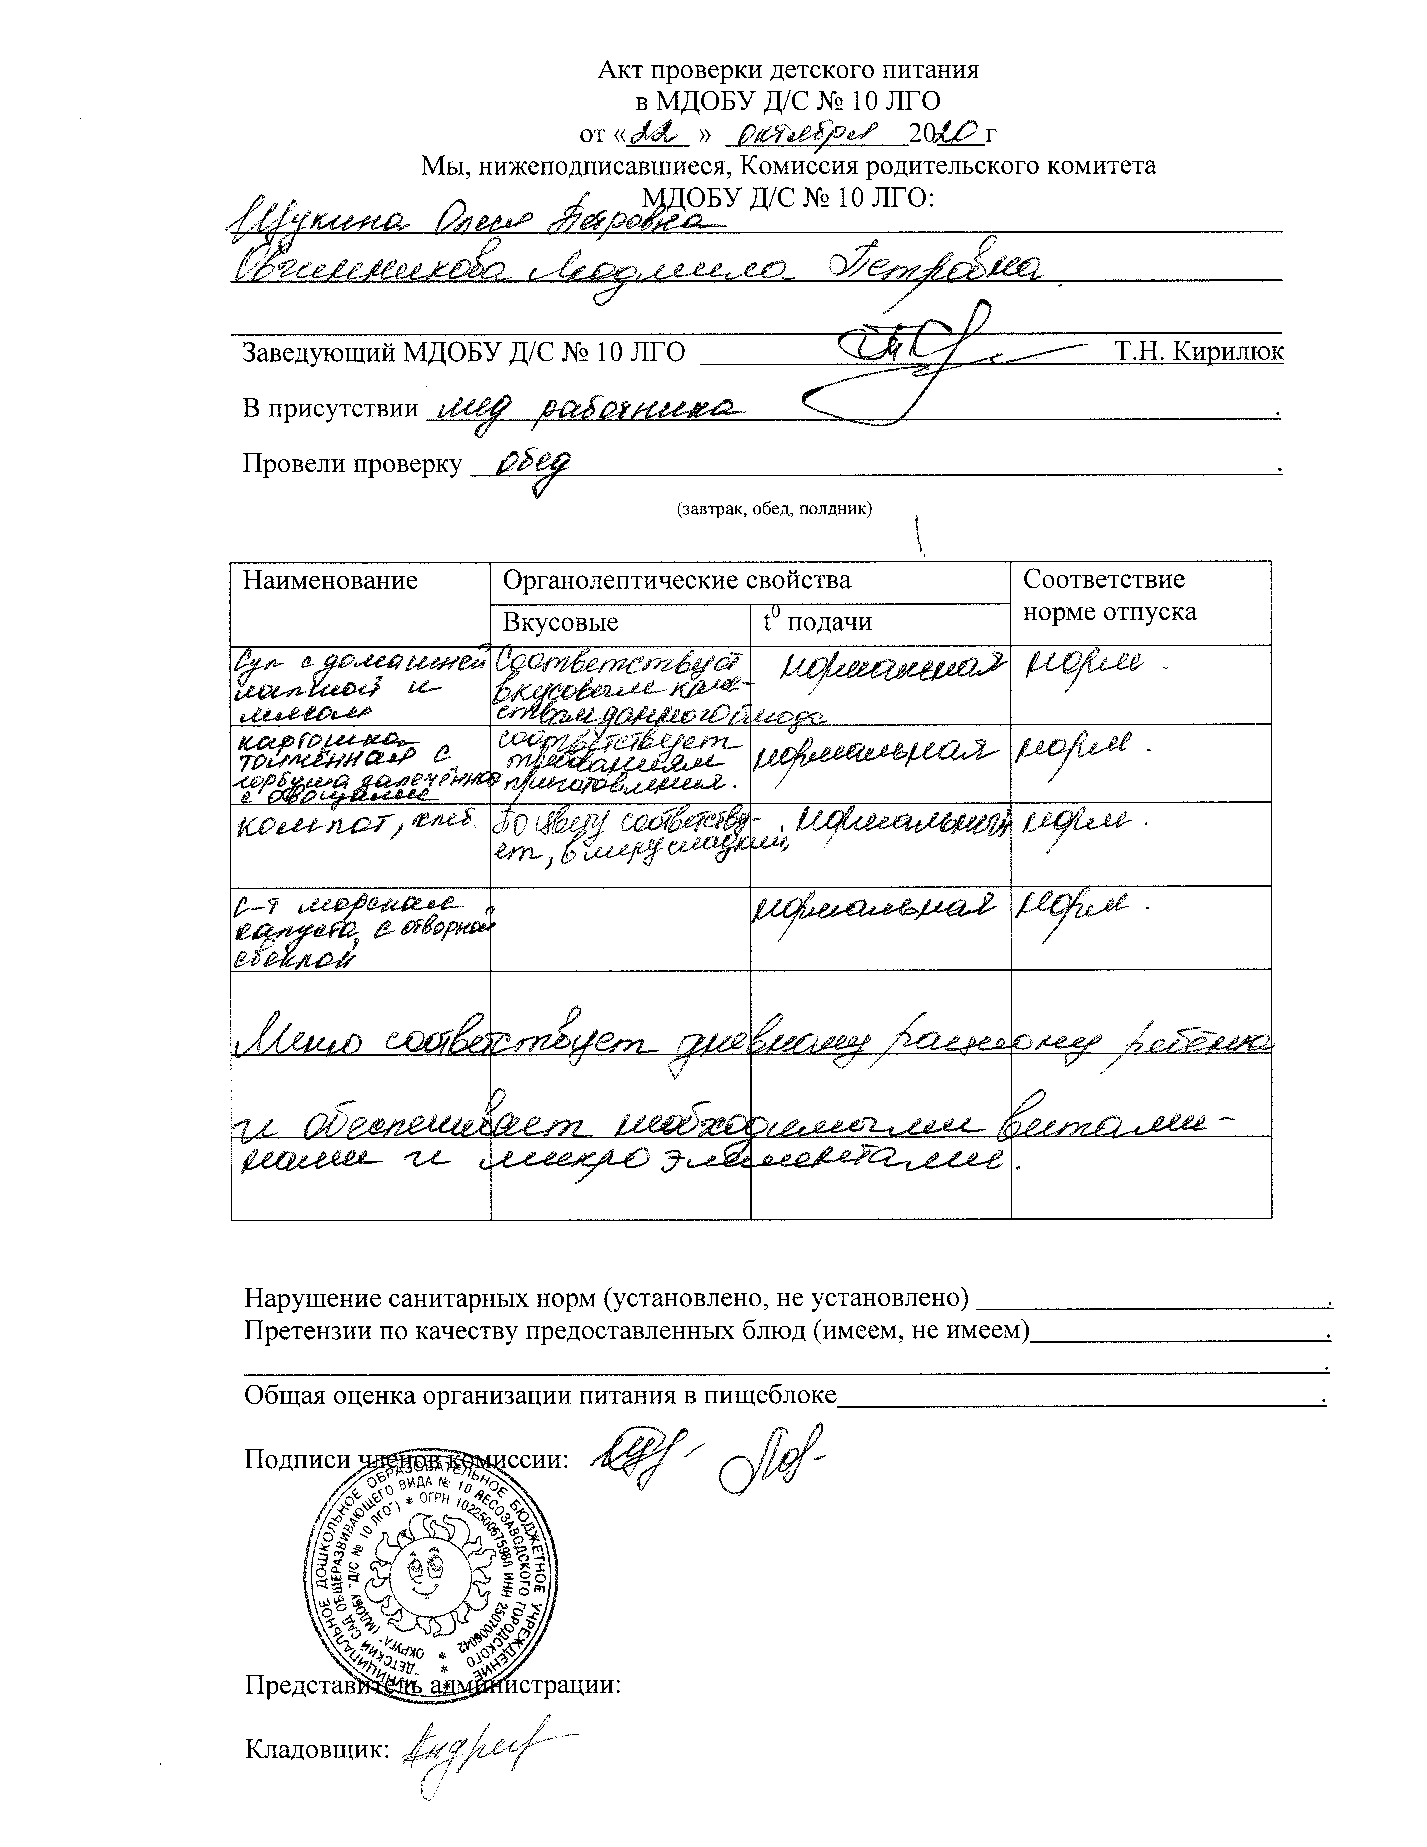 Акт проверки детского питания
в МДОБУ Д/С № 10 ЛГО
от «22» октября 2020 г
Мы, нижеподписавшиеся, Комиссия родительского комитета
МДОБУ Д/С № 10 ЛГО:
Щукина Олеся Петровна
Овчинникова Людмила Петровна
Заведующий МДОБУ Д/С № 10 ЛГО Т.Н. Кирилюк
В присутствии мед работника .
Провели проверку обед .
(завтрак, обед, полдник)
Наименование Органолептические свойства Соответствие
норме отпуска
Вкусовые t⁰ подачи
Суп с домашней
лапшой и
мясом
Соответствует
вкусовым каче-
ствам данного блюда
нормальная норм.
картошка
томлённая с
горбуша запечённая
с овощами
соответствует
требованиям
приготовления.
нормальная норм.
компот, хлеб.
По цвету соответству-
ет, в меру сладкий,
нормальный норм.
с-т морская
капуста, с отворной
свеклой
нормальная норм.
Меню соответствует дневному рациону ребёнка
и обеспечивает необходимыми витами-
нами и микроэлементами.
Нарушение санитарных норм (установлено, не установлено) .
Претензии по качеству предоставленных блюд (имеем, не имеем) .
.
Общая оценка организации питания в пищеблоке .
Подписи членов комиссии:
МУНИЦИПАЛЬНОЕ ДОШКОЛЬНОЕ ОБРАЗОВАТЕЛЬНОЕ БЮДЖЕТНОЕ УЧРЕЖДЕНИЕ
"ДЕТСКИЙ САД ОБЩЕРАЗВИВАЮЩЕГО ВИДА № 10 ЛЕСОЗАВОДСКОГО ГОРОДСКОГО
ОКРУГА" (МДОБУ "Д/С № 10 ЛГО") * ОГРН 1022500675981 ИНН 2507006042 *
Представитель администрации:
Кладовщик: